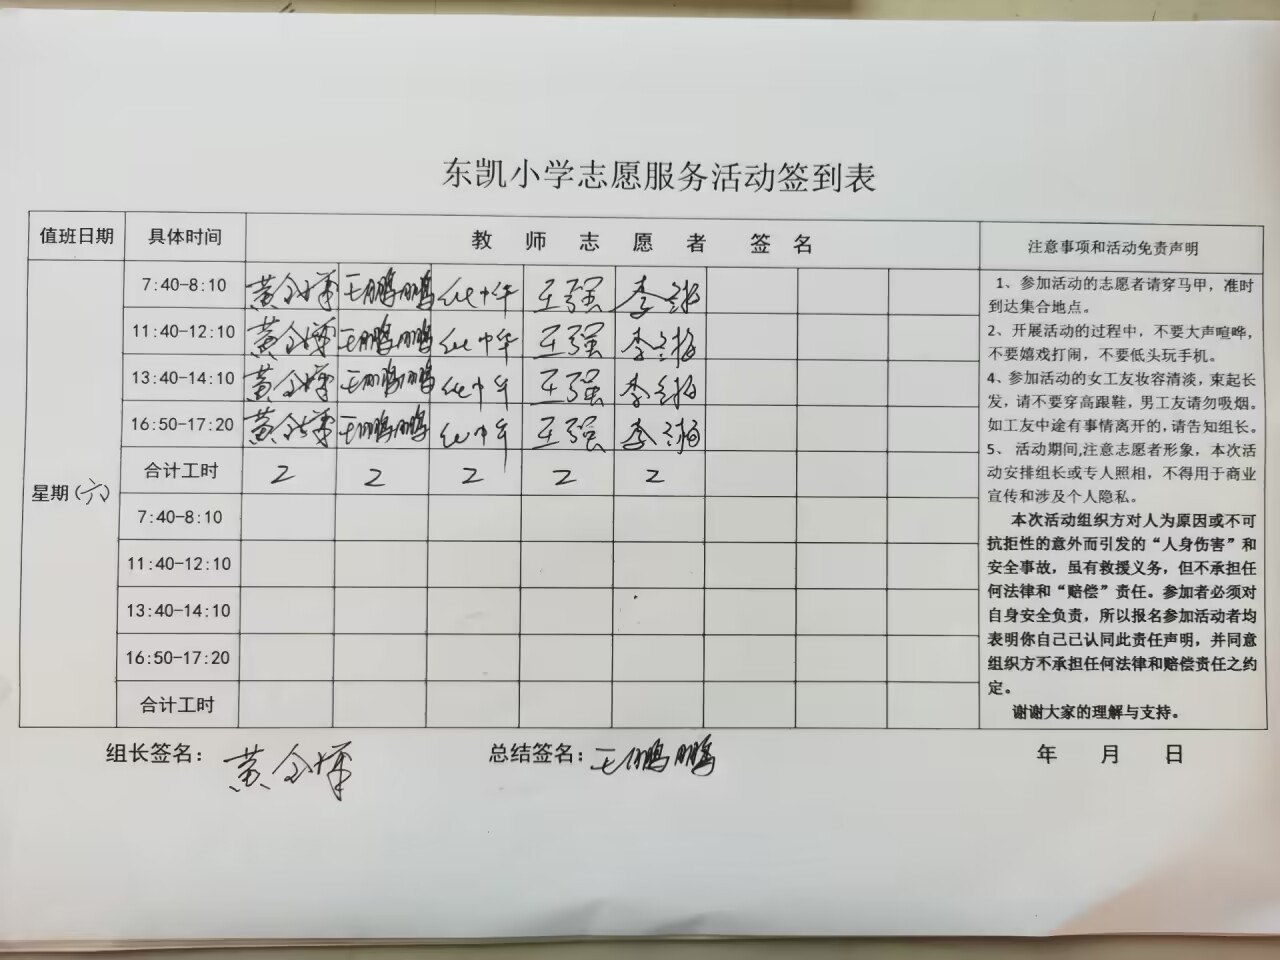 东凯小学志愿服务活动签到表
值班日期 具体时间 教师志愿者 签名 注意事项和活动免责声明
星期(六)
7:40-8:10 王鹏鹏 王强
11:40-12:10 王鹏鹏 王强
13:40-14:10 王鹏鹏 王强
16:50-17:20 王鹏鹏 王强
合计工时 2 2 2 2 2
7:40-8:10
11:40-12:10
13:40-14:10
16:50-17:20
合计工时
1、参加活动的志愿者请穿马甲，准时
到达集合地点。
2、开展活动的过程中，不要大声喧哗，
不要嬉戏打闹，不要低头玩手机。
4、参加活动的女工友妆容清淡，束起长
发，请不要穿高跟鞋，男工友请勿吸烟。
如工友中途有事情离开的,请告知组长。
5、 活动期间,注意志愿者形象，本次活
动安排组长或专人照相，不得用于商业
宣传和涉及个人隐私。
本次活动组织方对人为原因或不可
抗拒性的意外而引发的“人身伤害”和
安全事故，虽有救援义务，但不承担任
何法律和“赔偿”责任。参加者必须对
自身安全负责，所以报名参加活动者均
表明你自己已认同此责任声明，并同意
组织方不承担任何法律和赔偿责任之约
定。
谢谢大家的理解与支持。
组长签名： 总结签名：王鹏鹏 年 月 日